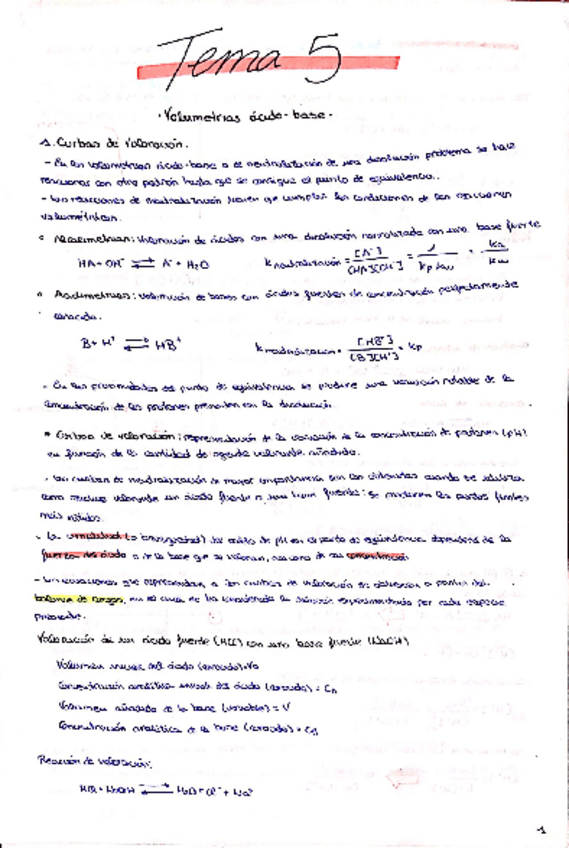 Tema 5
· Volumetrias ácido-base ·
1. Curbas de valoración.
- En las volumetrias ácido-base o de neutralización de una disolución problema se hace
reaccionar con otra patrón hasta que se consigue el punto de equivalencia.
- Las reacciones de neutralización tienen que cumplir las condiciones de las reacciones
volumétricas.
Alcalimetrias: valoración de ácidos con una disolución normalizada con una base fuerte
HA + OH⁻ ⇌ A⁻ + H₂O K neutralización = [A⁻] / [HA][OH⁻] = 1 / Kp Kw = Ka / Kw
Acidimetrias: valoración de bases con ácidos fuertes de concentración perfectamente
conocida.
B + H⁺ ⇌ HB⁺ K neutralización = [HB⁺] / [B][H⁺] = Kp
- En las proximidades del punto de equivalencia se produce una variación notable de la
concentración de los protones presentes en la disolución.
* Curbas de valoración: representación de la variación de la concentración de protones (pH)
en función de la cantidad de agente valorante añadido.
- Las curbas de neutralización de mayor importancia son las obtenidas cuando se utiliza
como reactivo valorante un ácido fuerte o una base fuerte: se muestran los puntos finales
más nítidos.
- La amplitud (o brusquedad) del salto de pH en el punto de equivalencia dependerá de la
fuerza del ácido o de la base que se valoran, así como de su concentración
- Las ecuaciones que representan a las curbas de valoración se obtienen a partir del
balance de cargas, en el cual se ha considerado la dilución experimentada por cada especie
presente.
Valoración de un ácido fuerte (HCl) con una base fuerte (NaOH)
Volumen inicial del ácido (conocido) = V₀
Concentración analítica inicial del ácido (conocida) = Ca
Volumen añadido de la base (variable) = V
Concentración analítica de la base (conocida) = Cb
Reacción de valoración:
HCl + NaOH ⇌ H₂O + Cl⁻ + Na⁺
1